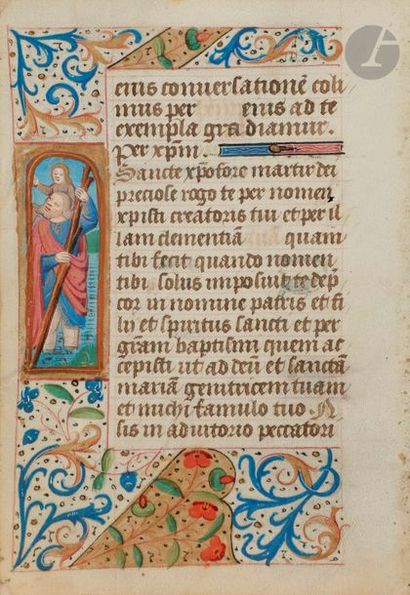 eius conversatione coli
mus per eius ad te
exempla gradiamur.
Per xpm.
Sancte xpofore martir dei
preciose rogo te per nomen
xpisti creatoris tui et per il
lam clementiam quam
tibi fecit quando nomen
tibi solus imposuit te dep
cor in nomine patris et fi
ly et spiritus sancti et per
gram baptismi quem ac
cepisti ut ad deu et sancta
mariam genitricem tuam
et michi famulo tuo
sis in adiutorio peccatori